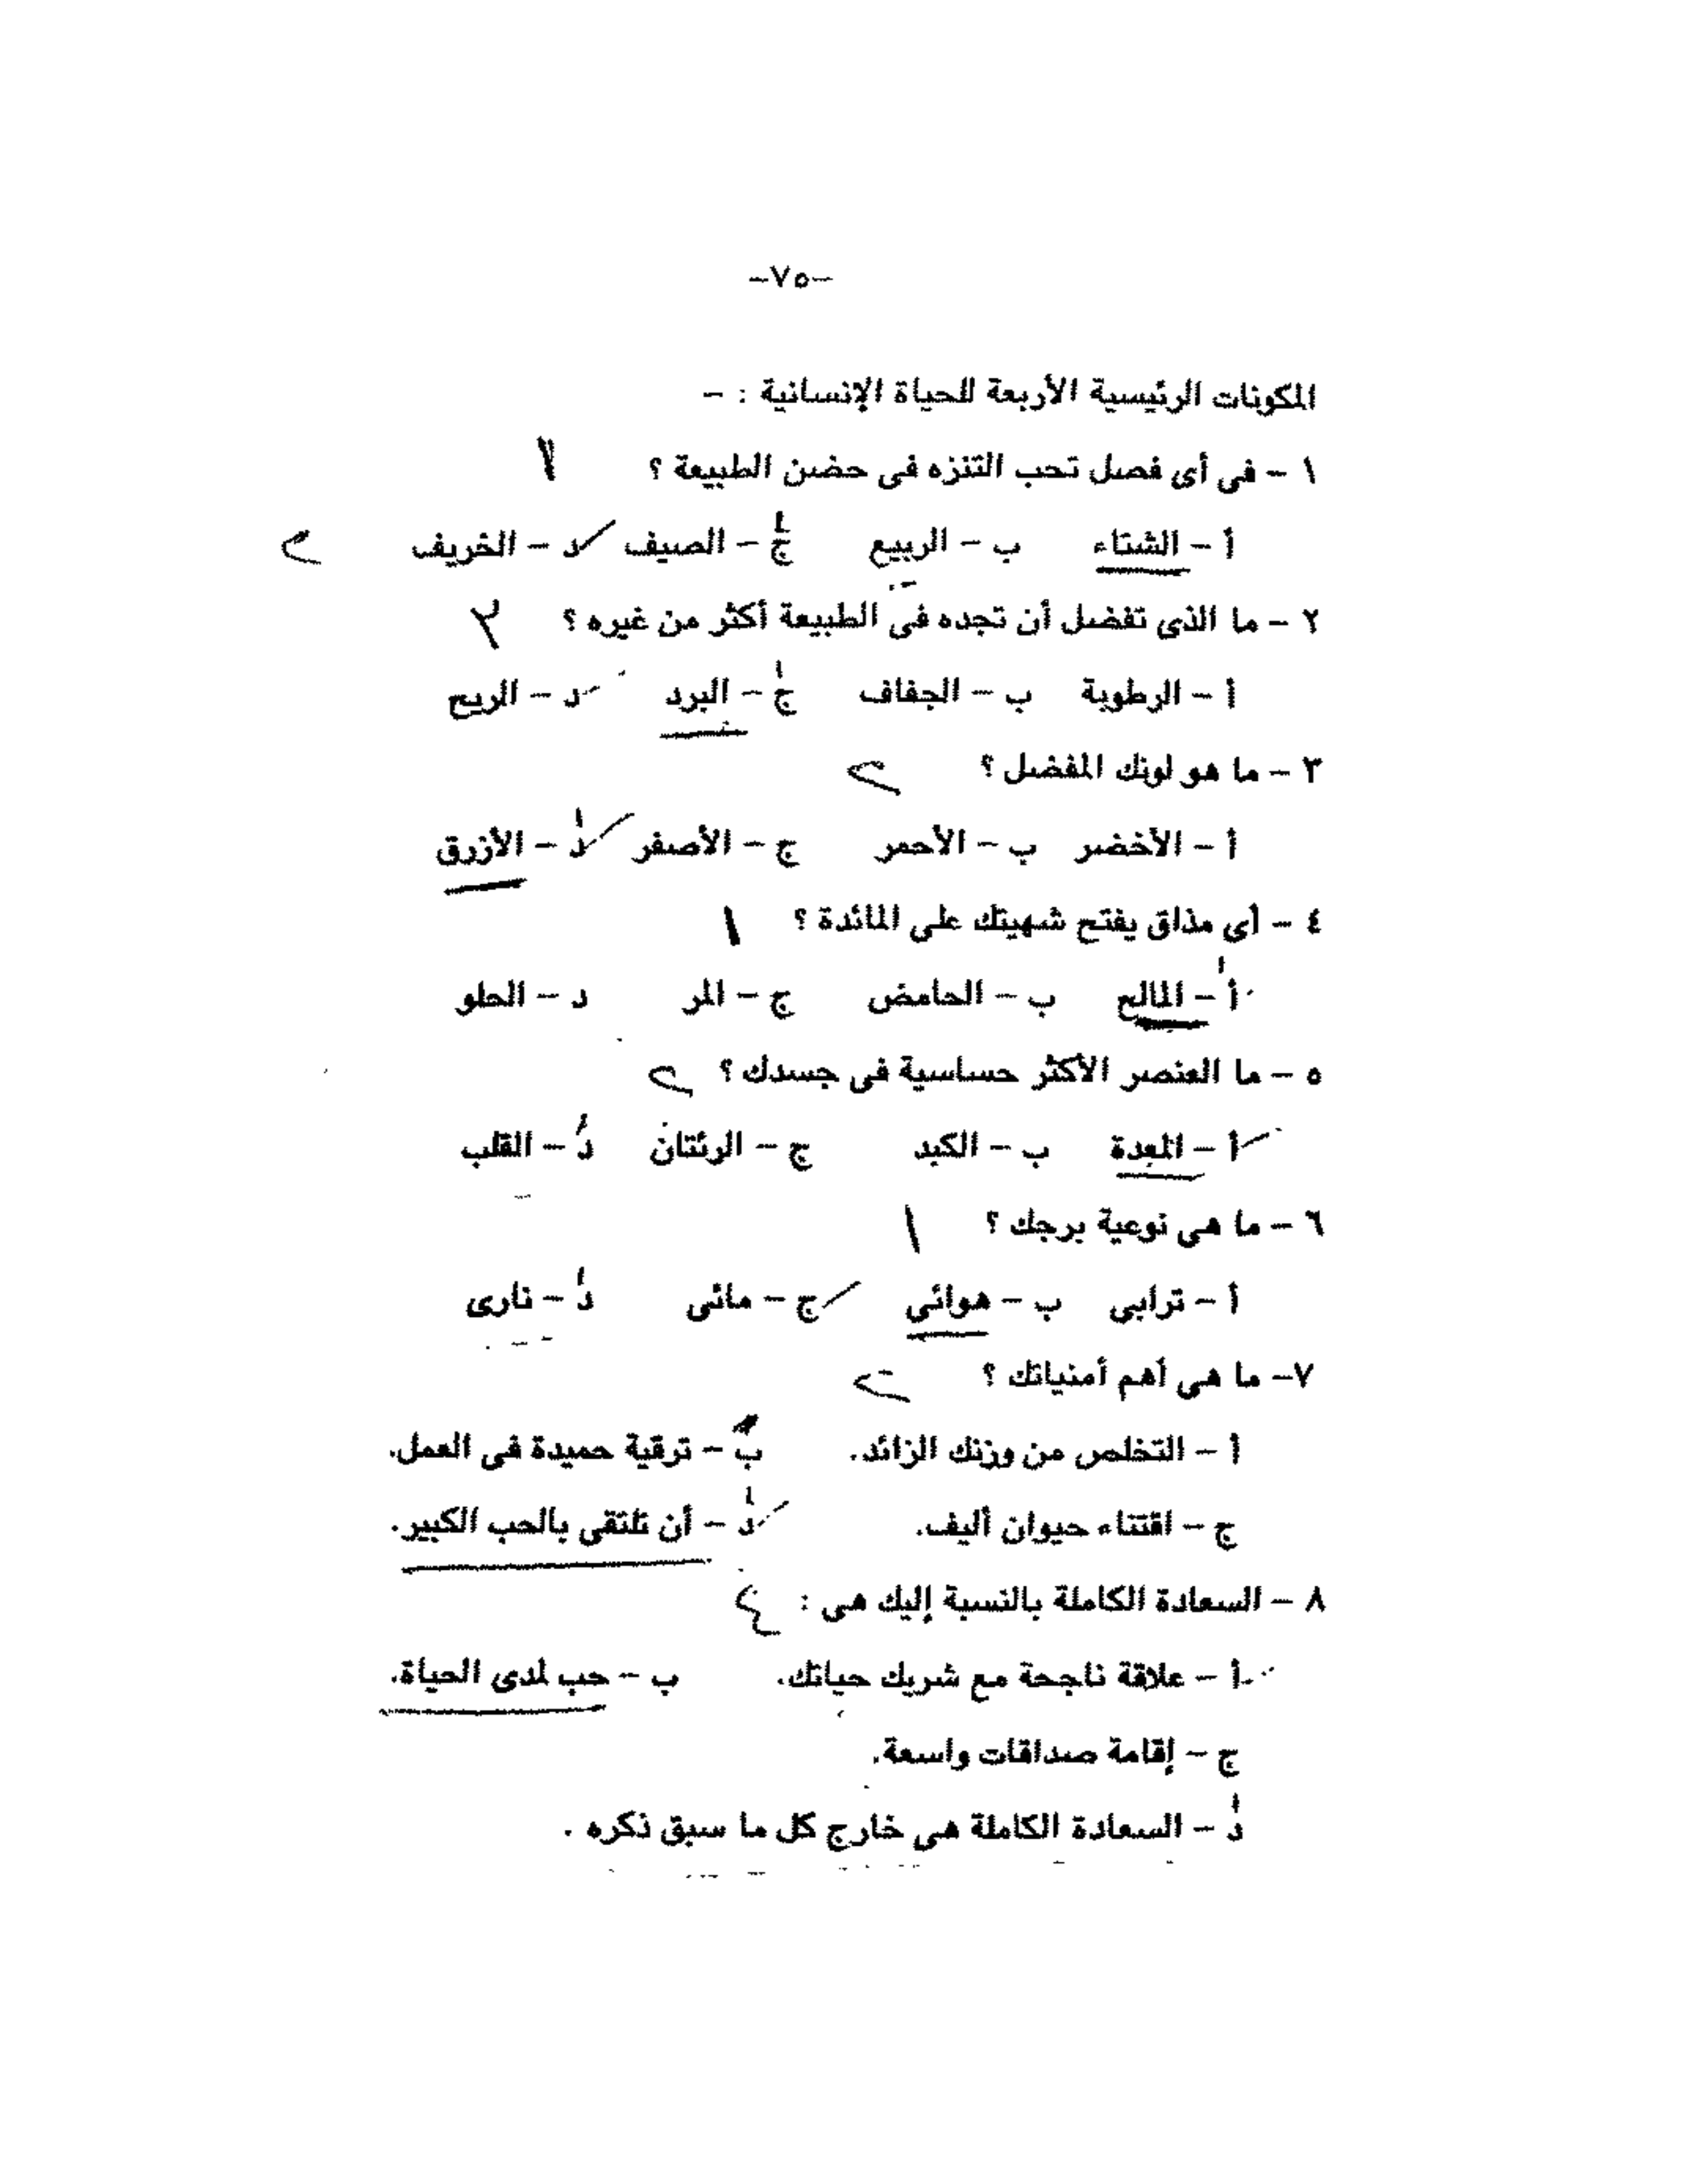 -٧٥-
المكونات الرئيسية الأربعة للحياة الإنسانية : -
١ - فى أى فصل تحب التنزه فى حضن الطبيعة ؟
أ - الشتاء ب - الربيع ج - الصيف د - الخريف
٢ - ما الذى تفضل أن تجده فى الطبيعة أكثر من غيره ؟
أ - الرطوبة ب - الجفاف ج - البرد د - الريح
٣ - ما هو لونك المفضل ؟
أ - الأخضر ب - الأحمر ج - الأصفر د - الأزرق
٤ - أى مذاق يفتح شهيتك على المائدة ؟
أ - المالح ب - الحامض ج - المر د - الحلو
٥ - ما العنصر الأكثر حساسية فى جسدك ؟
أ - المعدة ب - الكبد ج - الرئتان د - القلب
٦ - ما هى نوعية برجك ؟
أ - ترابى ب - هوائي ج - مائى د - نارى
٧- ما هى أهم أمنياتك ؟
أ - التخلص من وزنك الزائد. ب - ترقية حميدة فى العمل.
ج - اقتناء حيوان أليف. د - أن تلتقى بالحب الكبير.
٨ - السعادة الكاملة بالنسبة إليك هى :
أ - علاقة ناجحة مع شريك حياتك. ب - حب لمدى الحياة.
ج - إقامة صداقات واسعة.
د - السعادة الكاملة هى خارج كل ما سبق ذكره .